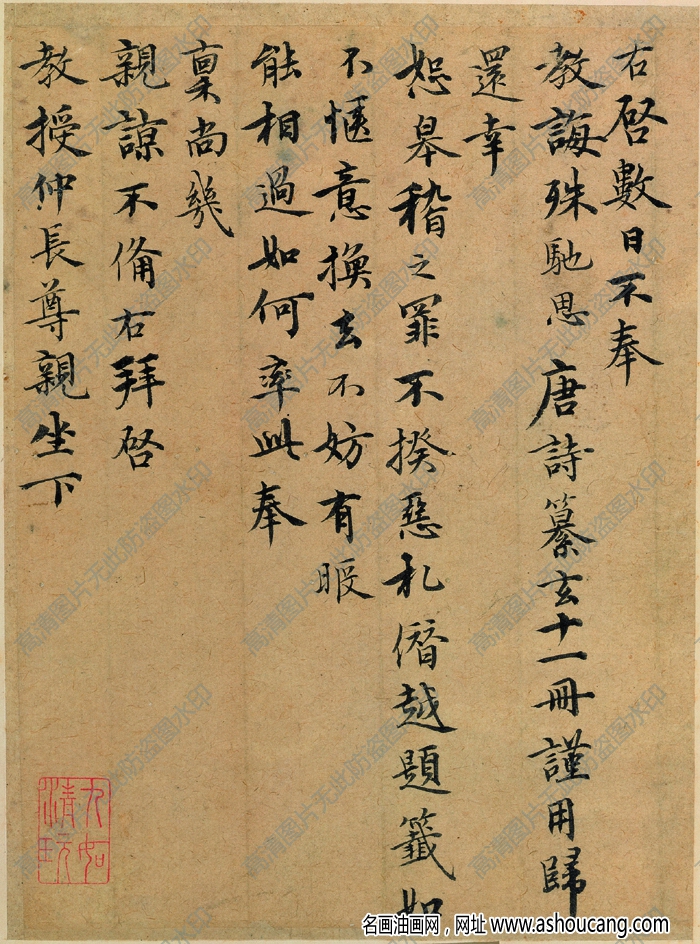 右啓數日不奉
教誨殊馳思唐詩纂玄十一冊謹用歸
還幸
恕皋稽之罪不揆惡札僭越題籤如
不愜意換去不妨有暇
能相過如何率此奉
稟尚幾
親諒不備右拜啓
教授仲長尊親坐下
九如清玩
高清图片无此防盗图水印
名画油画网，网址 www.ashoucang.com